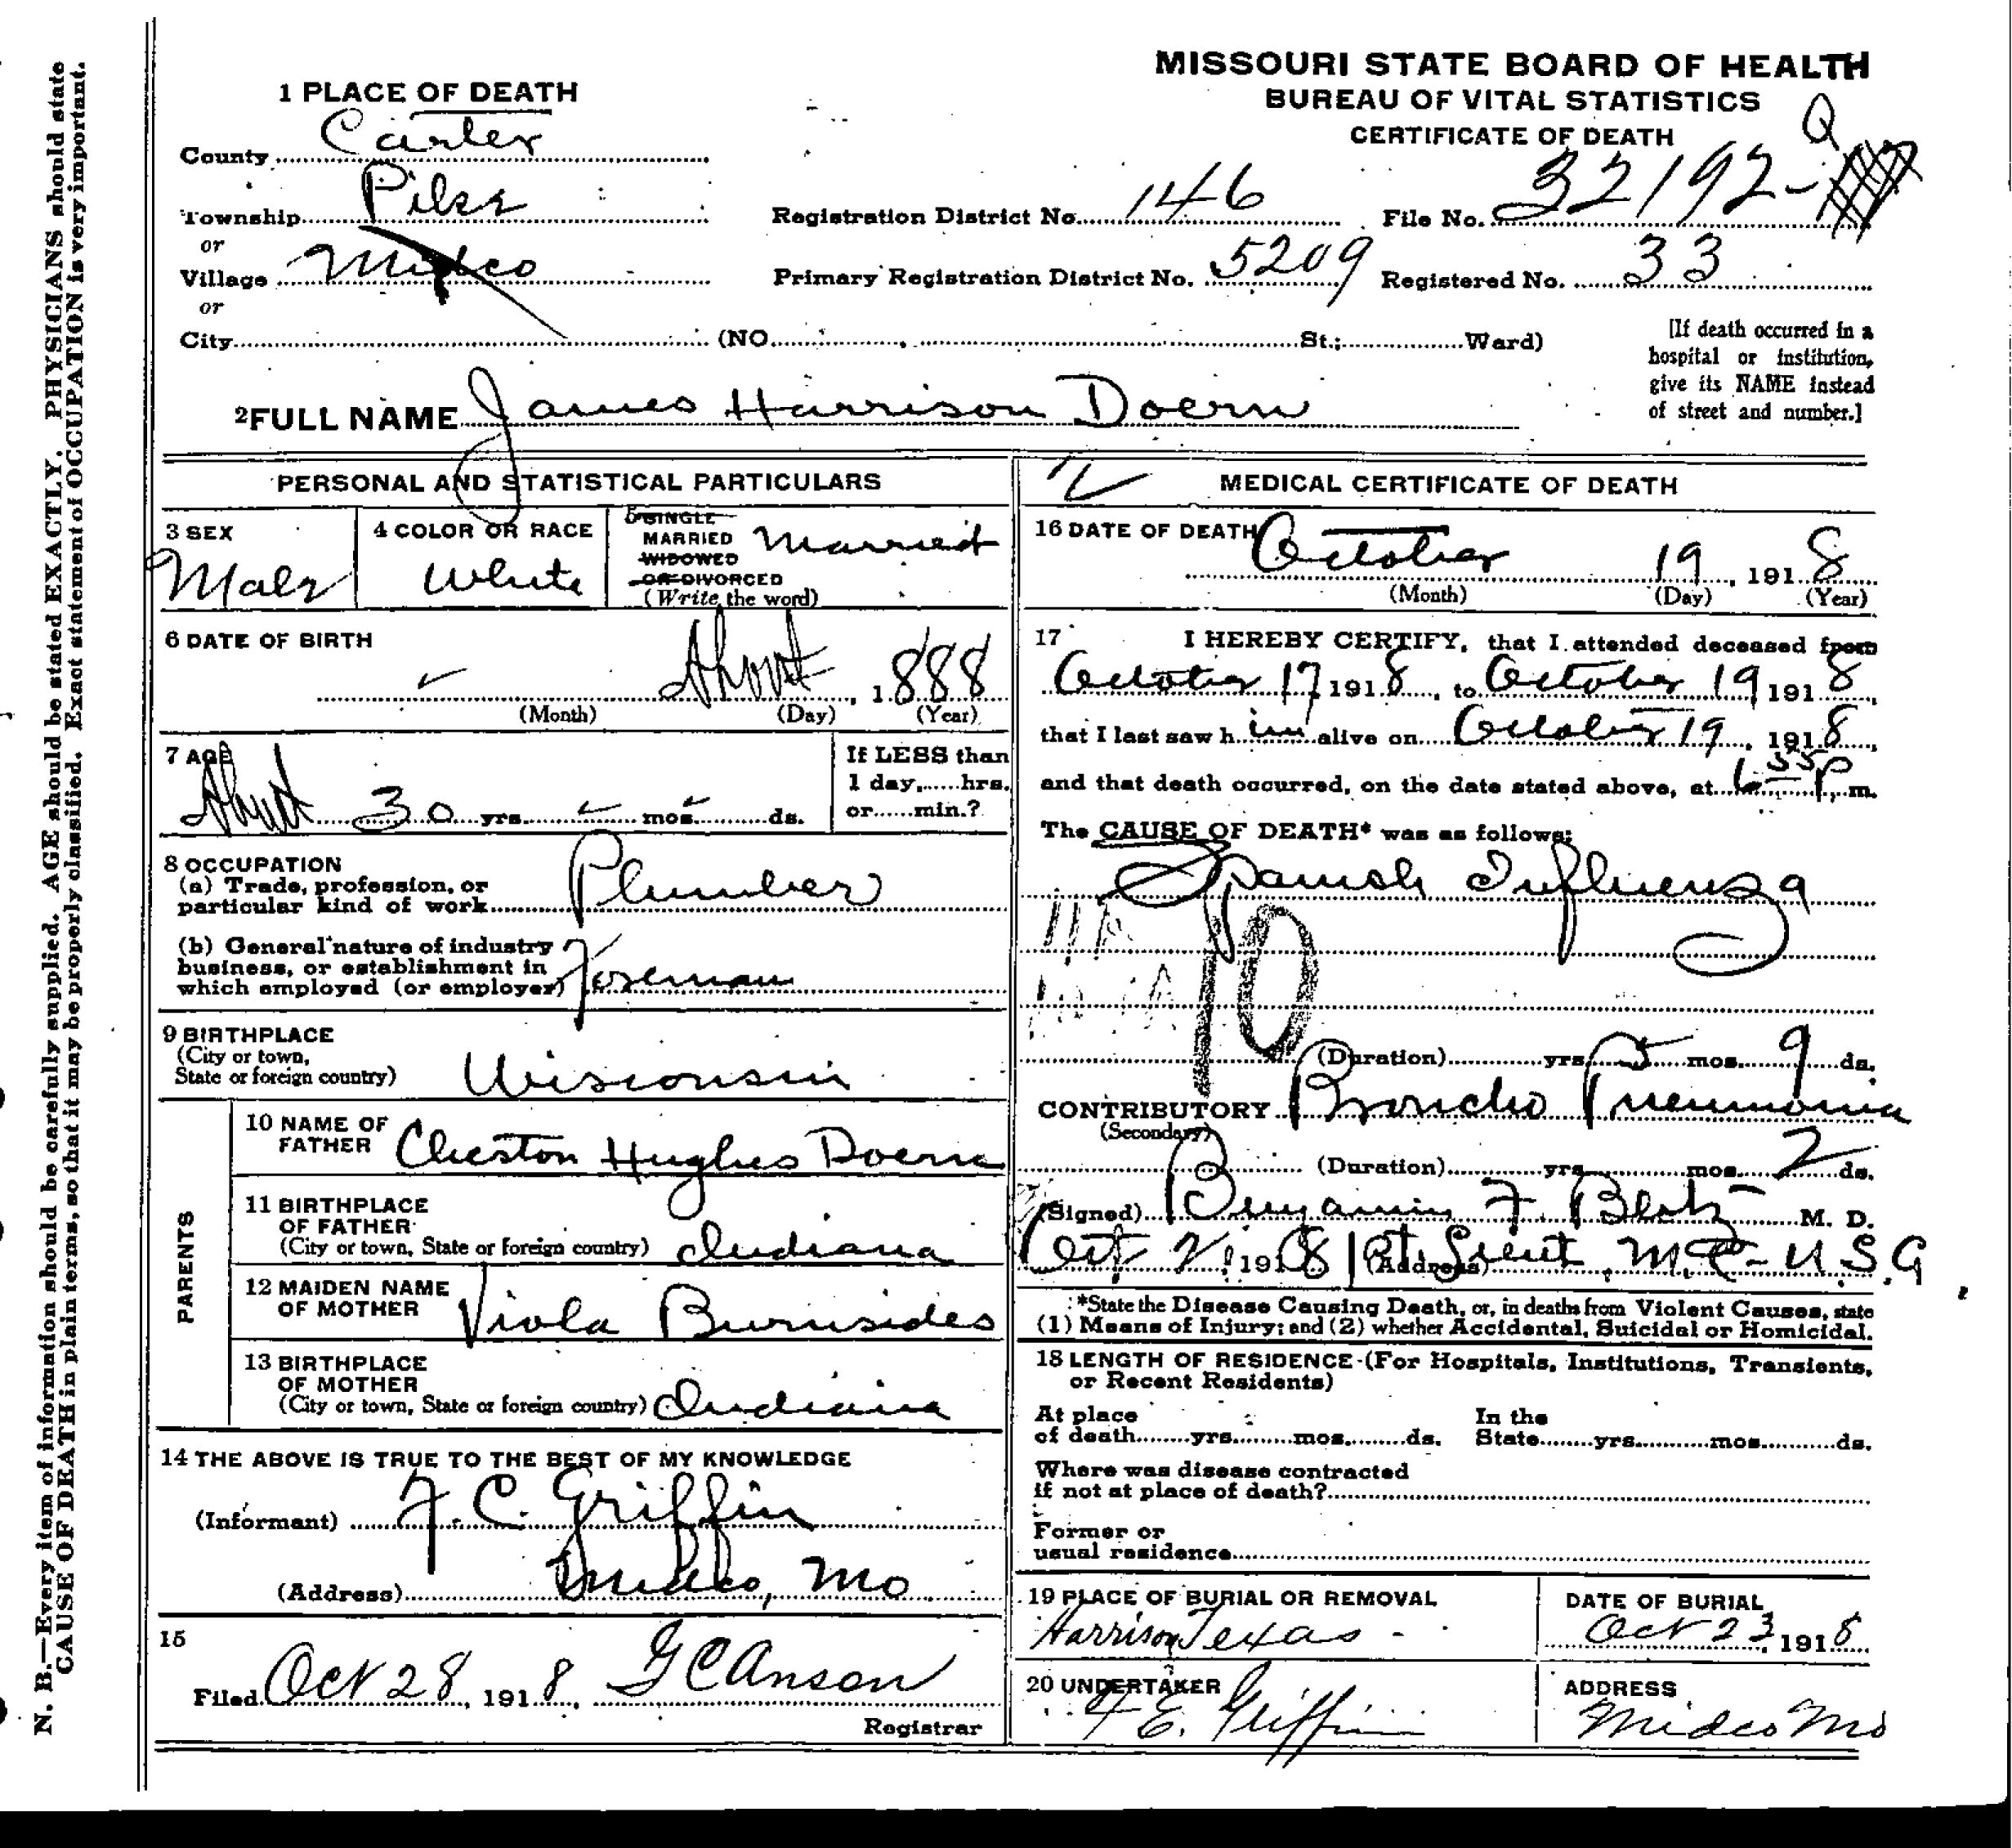 MISSOURI STATE BOARD OF HEALTH
BUREAU OF VITAL STATISTICS
CERTIFICATE OF DEATH
1 PLACE OF DEATH
County Carter
Township Pike
or
Village Midco
or
City (NO. St.; Ward)
Registration District No. 146 File No. 32192- Q
Primary Registration District No. 5209 Registered No. 33
[If death occurred in a
hospital or institution,
give its NAME instead
of street and number.]
2 FULL NAME James Harrison Doern
PERSONAL AND STATISTICAL PARTICULARS
3 SEX
Male
4 COLOR OR RACE
White
5 SINGLE
MARRIED
WIDOWED
OR DIVORCED
(Write the word)
Married
6 DATE OF BIRTH
About, 1888
(Month) (Day) (Year)
7 AGE
About 30 yrs. mos. ds.
If LESS than
1 day, hrs.
or min.?
8 OCCUPATION
(a) Trade, profession, or
particular kind of work Plumber
(b) General nature of industry
business, or establishment in
which employed (or employer) Foreman
9 BIRTHPLACE
(City or town,
State or foreign country) Wisconsin
PARENTS
10 NAME OF
FATHER Cheston Hughes Doern
11 BIRTHPLACE
OF FATHER
(City or town, State or foreign country) Indiana
12 MAIDEN NAME
OF MOTHER Viola Burnsides
13 BIRTHPLACE
OF MOTHER
(City or town, State or foreign country) Indiana
14 THE ABOVE IS TRUE TO THE BEST OF MY KNOWLEDGE
(Informant) F. C. Griffin
(Address) Midco, Mo
15
Filed Oct 28, 1918, G C Anson
Registrar
MEDICAL CERTIFICATE OF DEATH
16 DATE OF DEATH October 19, 1918
(Month) (Day) (Year)
17 I HEREBY CERTIFY, that I attended deceased from
October 17 1918, to October 19 1918
that I last saw him alive on October 19, 1918,
and that death occurred, on the date stated above, at 6 55 P. m.
The CAUSE OF DEATH* was as follows:
Spanish Influenza
10
(Duration) yrs. mos. 9 ds.
CONTRIBUTORY Broncho Pneumonia
(Secondary)
(Duration) yrs. mos. 2 ds.
(Signed) Benjamin F. M. D.
Oct, 21 1918 (Address) 1st Lieut. M.C- U.S.G
*State the Disease Causing Death, or, in deaths from Violent Causes, state
(1) Means of Injury; and (2) whether Accidental, Suicidal or Homicidal.
18 LENGTH OF RESIDENCE (For Hospitals, Institutions, Transients,
or Recent Residents)
At place
of death yrs. mos. ds.
In the
State yrs. mos. ds.
Where was disease contracted
if not at place of death?
Former or
usual residence
19 PLACE OF BURIAL OR REMOVAL
Harrison Texas
DATE OF BURIAL
Oct 23 1918
20 UNDERTAKER
F E. Griffin
ADDRESS
Midco Mo
N. B.—Every item of information should be carefully supplied. AGE should be stated EXACTLY. PHYSICIANS should state
CAUSE OF DEATH in plain terms, so that it may be properly classified. Exact statement of OCCUPATION is very important.